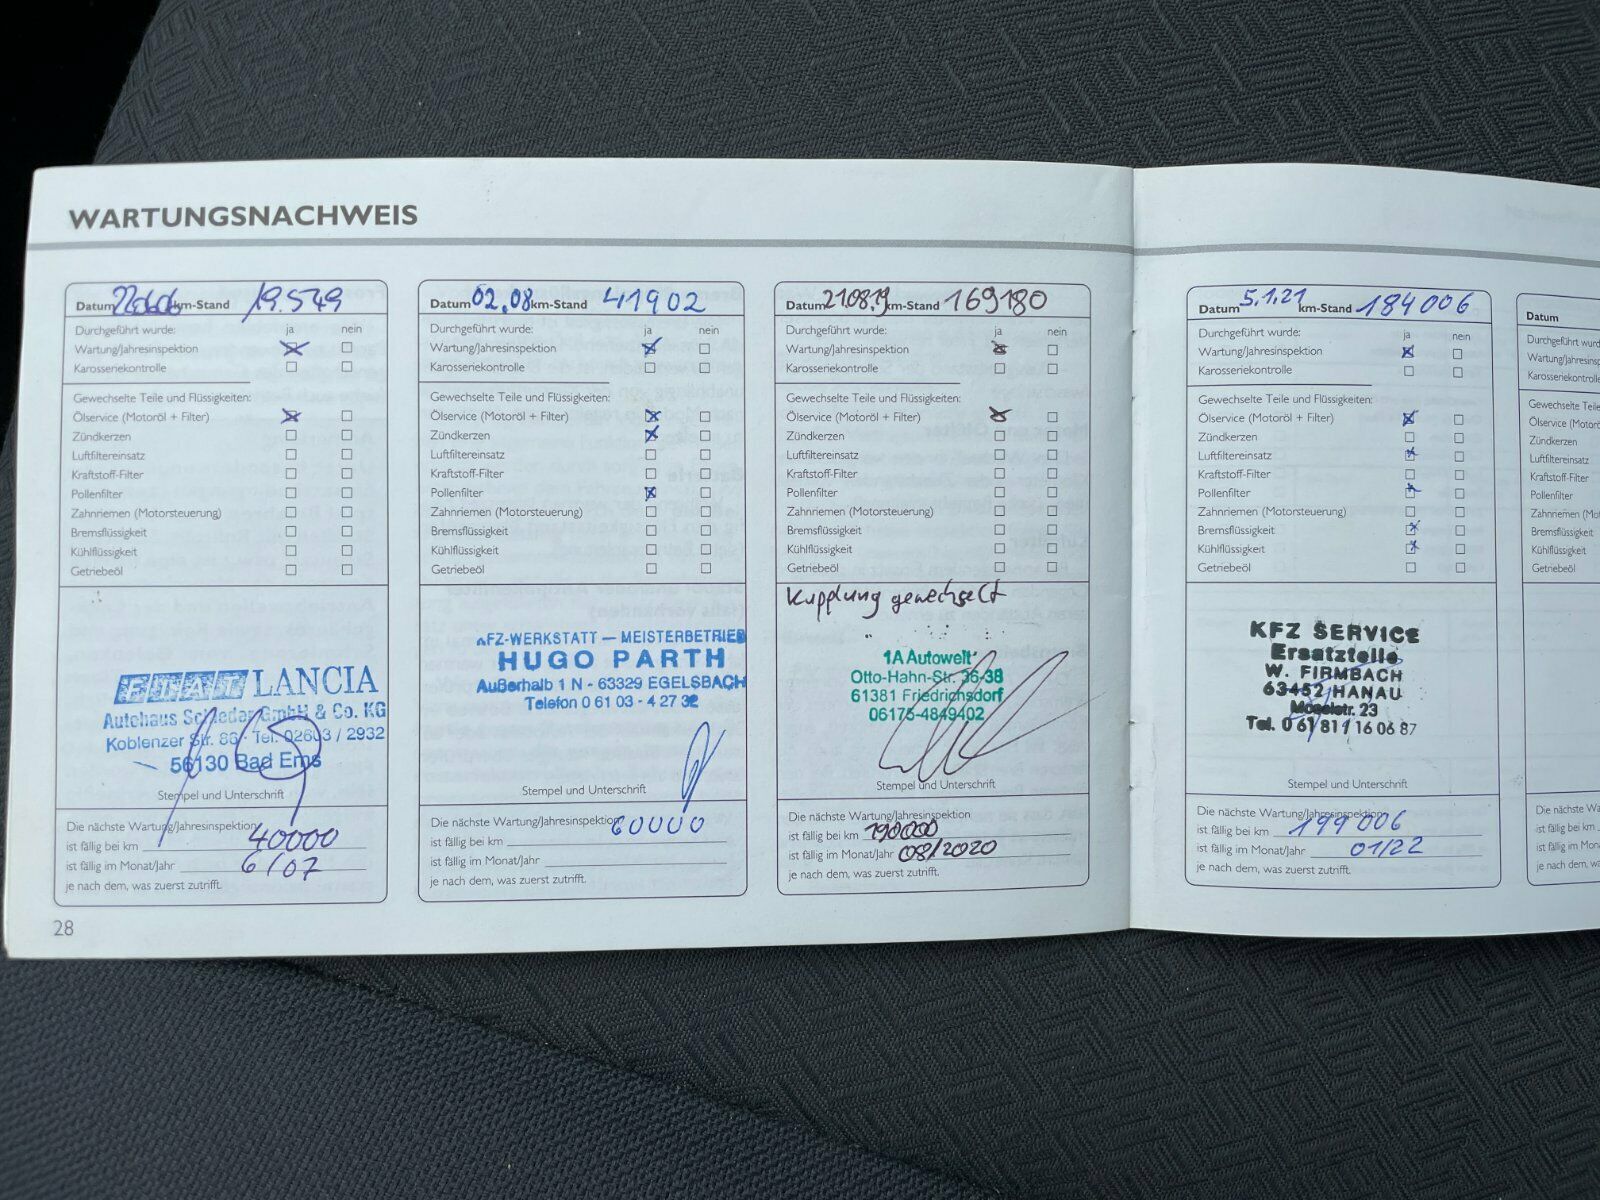 WARTUNGSNACHWEIS
Datum 22.06.06 km-Stand 19.549
Durchgeführt wurde: ja nein
Wartung/Jahresinspektion
Karosseriekontrolle
Gewechselte Teile und Flüssigkeiten:
Ölservice (Motoröl + Filter)
Zündkerzen
Luftfiltereinsatz
Kraftstoff-Filter
Pollenfilter
Zahnriemen (Motorsteuerung)
Bremsflüssigkeit
Kühlflüssigkeit
Getriebeöl
FIAT LANCIA
Autohaus GmbH & Co. KG
Koblenzer Str. 86 · Tel. 02603 / 2932
56130 Bad Ems
Stempel und Unterschrift
Die nächste Wartung/Jahresinspektion
ist fällig bei km 40000
ist fällig im Monat/Jahr 6/07
je nach dem, was zuerst zutrifft.
28
Datum 02.08 km-Stand 41902
Durchgeführt wurde: ja nein
Wartung/Jahresinspektion
Karosseriekontrolle
Gewechselte Teile und Flüssigkeiten:
Ölservice (Motoröl + Filter)
Zündkerzen
Luftfiltereinsatz
Kraftstoff-Filter
Pollenfilter
Zahnriemen (Motorsteuerung)
Bremsflüssigkeit
Kühlflüssigkeit
Getriebeöl
KFZ-WERKSTATT — MEISTERBETRIEB
HUGO PARTH
Außerhalb 1 N - 63329 EGELSBACH
Telefon 0 61 03 - 4 27 32
Stempel und Unterschrift
Die nächste Wartung/Jahresinspektion
ist fällig bei km 60000
ist fällig im Monat/Jahr
je nach dem, was zuerst zutrifft.
Datum 21.08.19 km-Stand 169180
Durchgeführt wurde: ja nein
Wartung/Jahresinspektion
Karosseriekontrolle
Gewechselte Teile und Flüssigkeiten:
Ölservice (Motoröl + Filter)
Zündkerzen
Luftfiltereinsatz
Kraftstoff-Filter
Pollenfilter
Zahnriemen (Motorsteuerung)
Bremsflüssigkeit
Kühlflüssigkeit
Getriebeöl
Kupplung gewechselt
1A Autowelt
Otto-Hahn-Str. 36-38
61381 Friedrichsdorf
06175-4849402
Stempel und Unterschrift
Die nächste Wartung/Jahresinspektion
ist fällig bei km 190000
ist fällig im Monat/Jahr 08/2020
je nach dem, was zuerst zutrifft.
Datum 5.1.21 km-Stand 184006
Durchgeführt wurde: ja nein
Wartung/Jahresinspektion
Karosseriekontrolle
Gewechselte Teile und Flüssigkeiten:
Ölservice (Motoröl + Filter)
Zündkerzen
Luftfiltereinsatz
Kraftstoff-Filter
Pollenfilter
Zahnriemen (Motorsteuerung)
Bremsflüssigkeit
Kühlflüssigkeit
Getriebeöl
KFZ SERVICE
Ersatzteile
W. FIRMBACH
63452 HANAU
Moselstr. 23
Tel. 0 61 81 / 16 06 87
Stempel und Unterschrift
Die nächste Wartung/Jahresinspektion
ist fällig bei km 199006
ist fällig im Monat/Jahr 01/22
je nach dem, was zuerst zutrifft.
Datum
Durchgeführt wurd
Wartung/Jahresinsp
Karosseriekontrolle
Gewechselte Teile
Ölservice (Motorö
Zündkerzen
Luftfiltereinsatz
Kraftstoff-Filter
Pollenfilter
Zahnriemen (Mot
Bremsflüssigkeit
Kühlflüssigkeit
Getriebeöl
Die nächste Wa
ist fällig bei km
ist fällig im Mona
je nach dem, was